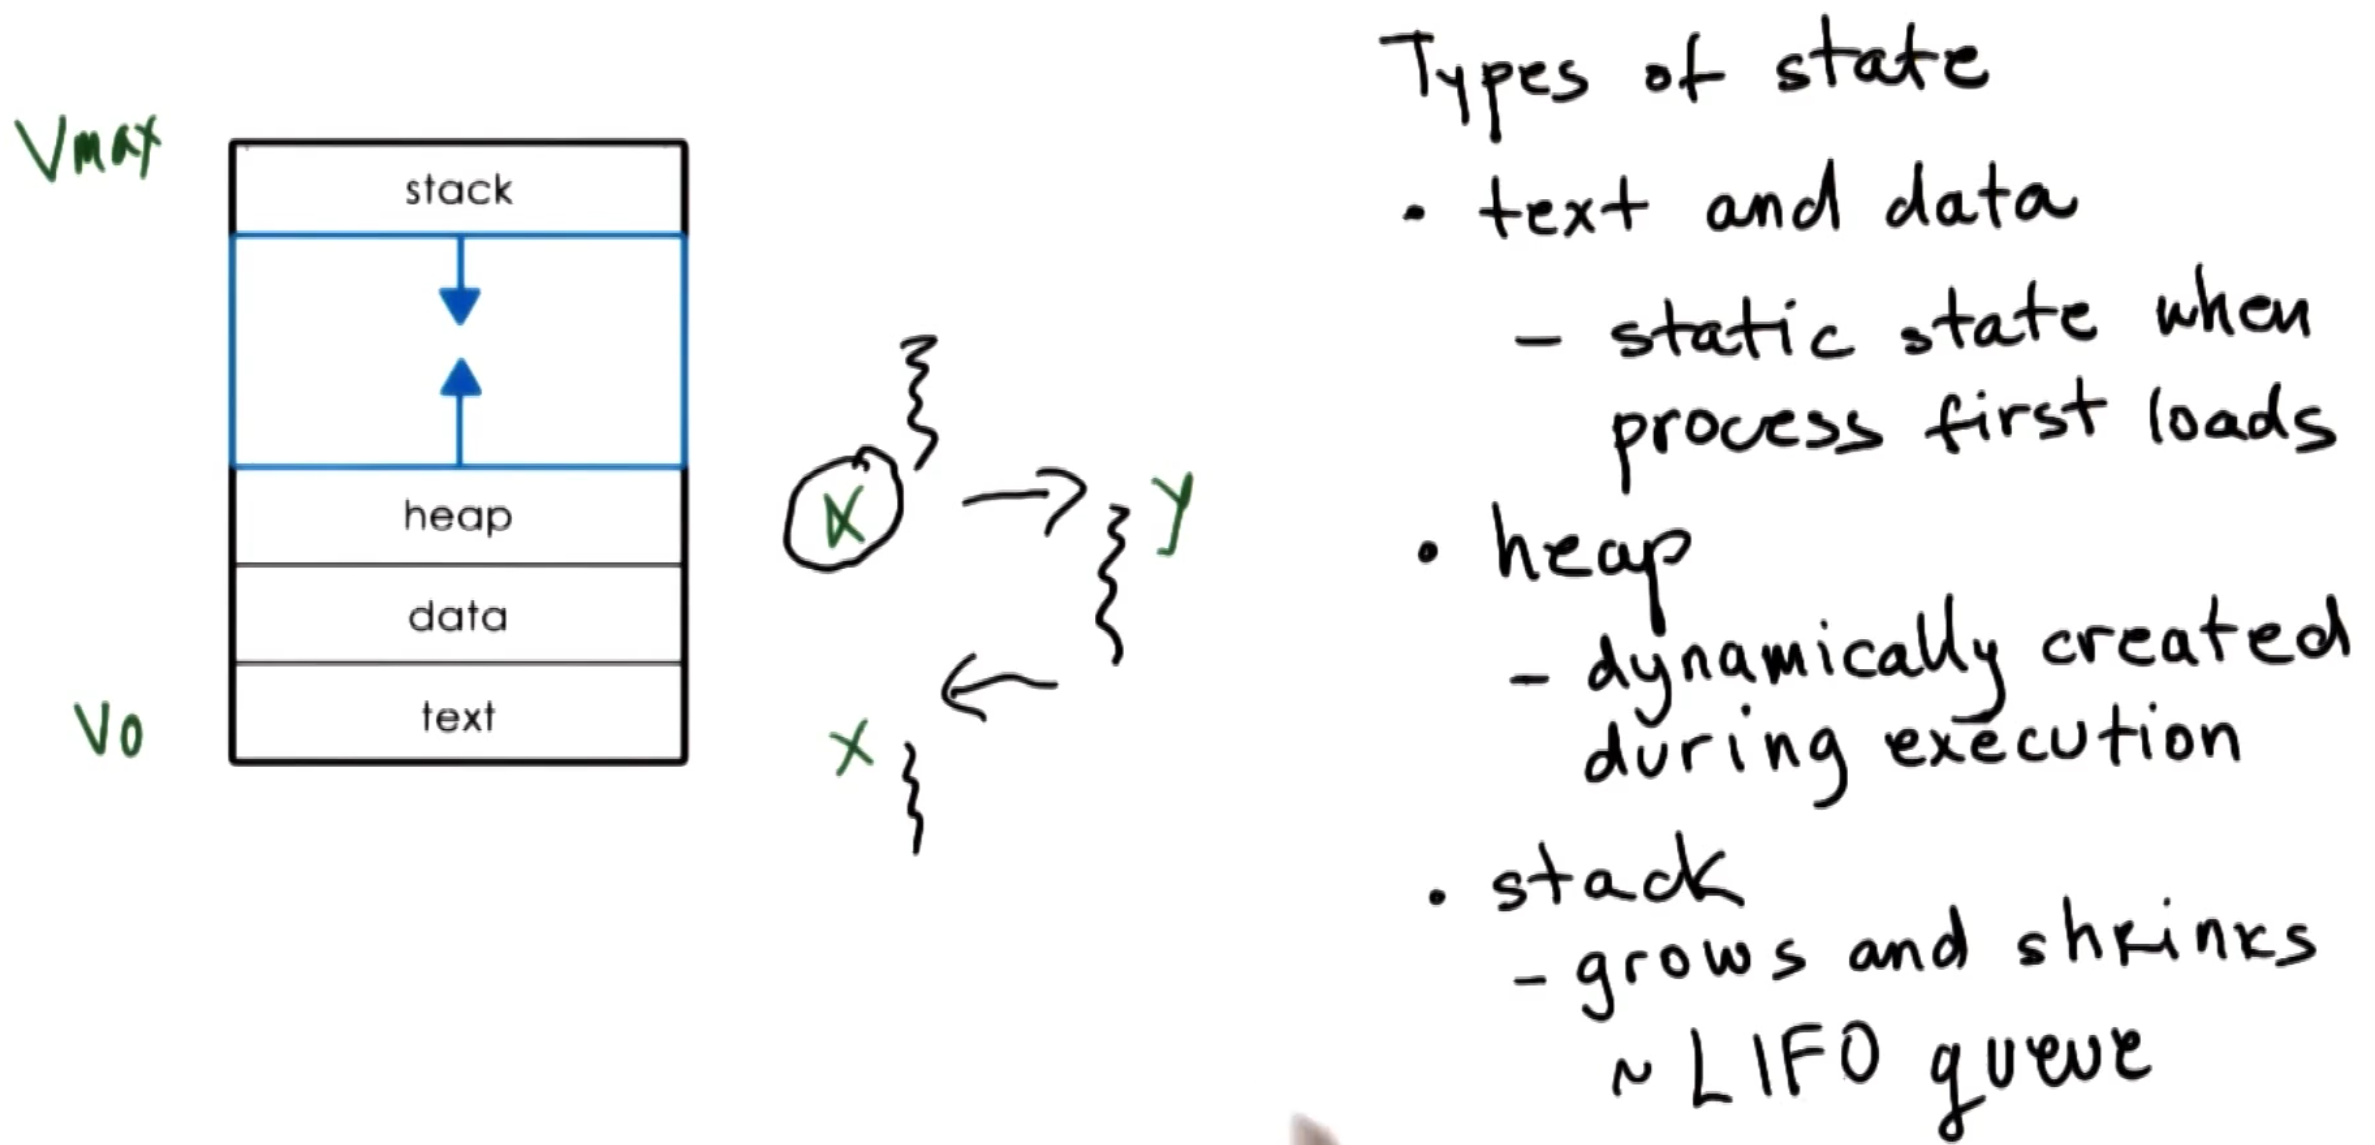 Vmax
stack
heap
data
text
V0
X
y
X
Types of state
• text and data
– static state when
process first loads
• heap
– dynamically created
during execution
• stack
– grows and shrinks
~ LIFO queue